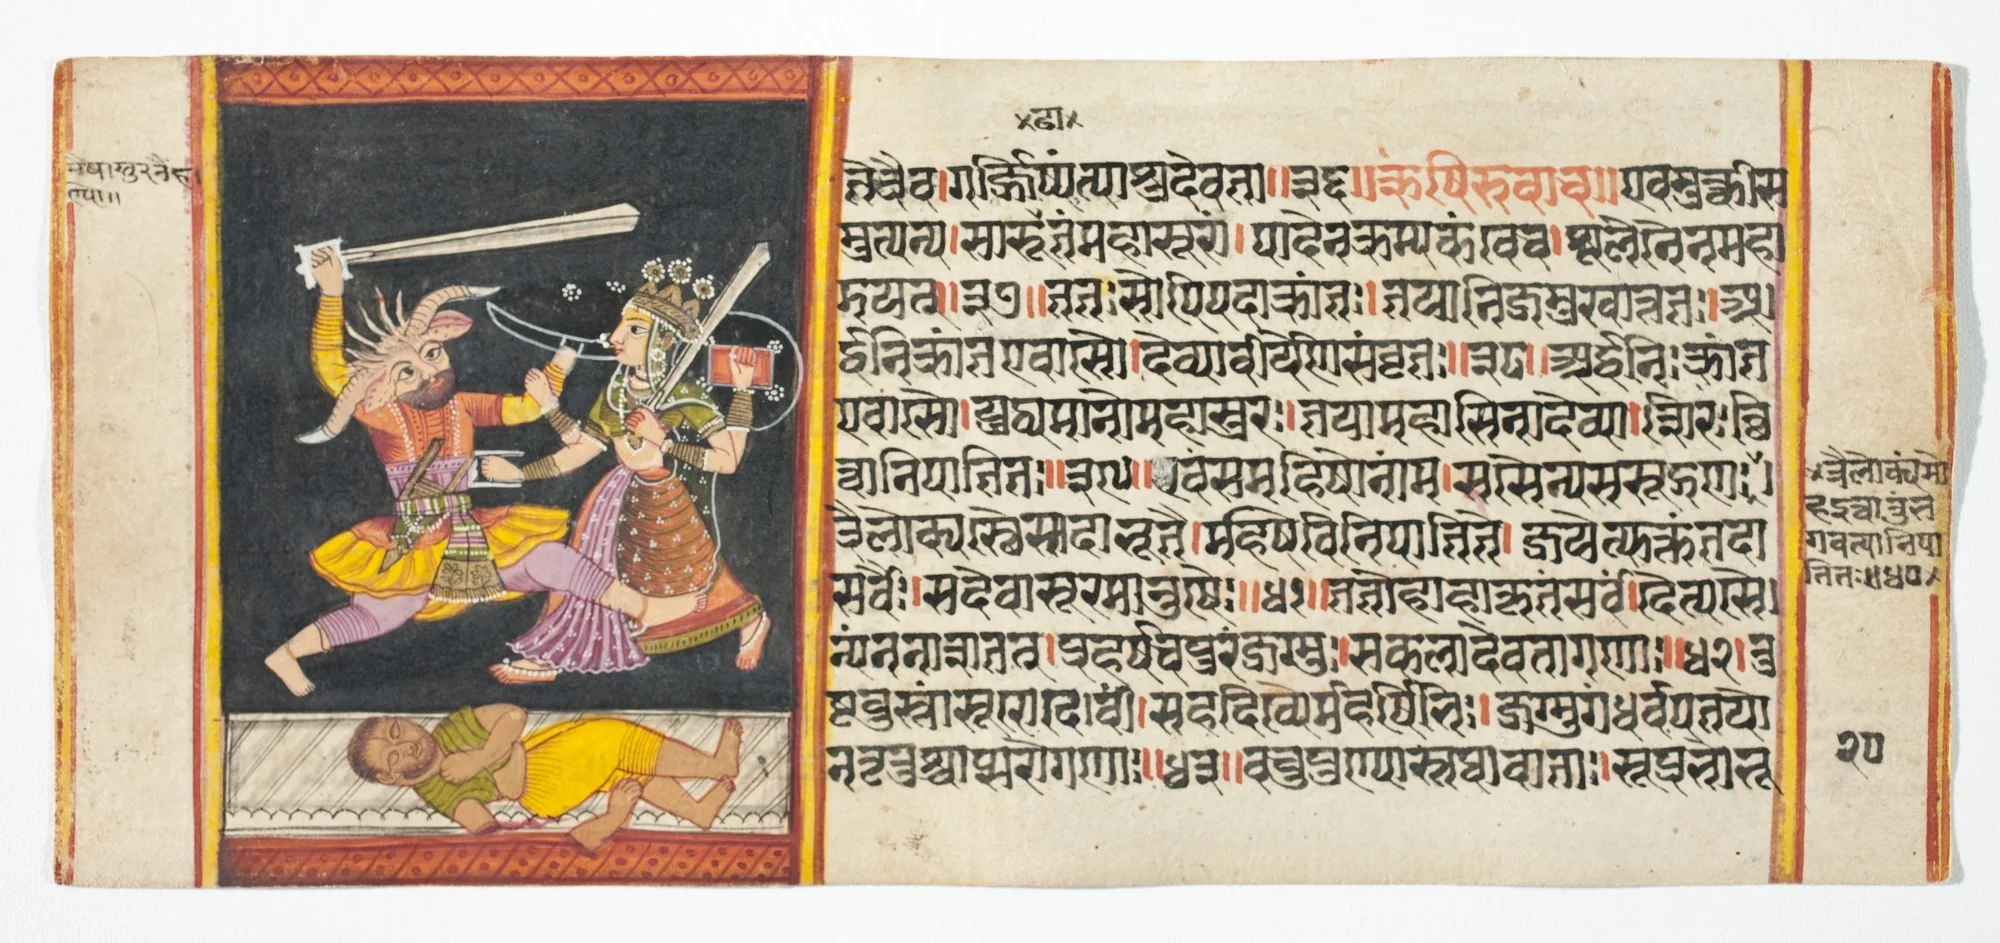 मैषासुरनैह
ण्यो॥
×ढा×
तेत्रैव।गर्ज्जिष्यंत्याशुदेवता॥३६॥ऋषिरुवाच॥एवमुक्त्वास
मुत्पत्य।सारूतंमहासूरं।पादेनक्रम्यकंठेच।शूलेनैनमता
डयत॥३७॥ततःसोपिपदाक्रांतः।तयानिजमुखात्ततः।अ
र्द्धनिक्रांतएवासौ।देव्यावीर्येणसंवृतः॥३८॥अर्द्धनिःक्रांत
एवासौ।युध्यमानोमहासुरः।तयामहासिनादेव्या।शिरःछि
त्वानिपातितः॥३९॥एवंसमहिषोनाम।ससैन्यससूहृगणः।
त्रैलोक्यस्थैस्तदाभूतै।महिषेविनिपातिते।जयेत्युक्तंतदा
सर्वैः।सदेवासूरमानुषैः॥४१॥ततोहाहाकृतंसर्वं।दैत्यसै
न्यंननाशतत।प्रहर्षंचपुरंजग्मुः।सकलादेवतागणाः॥४२।तु
ष्टुवुस्त्वांसूरादेवीं।सहदिव्यैर्महर्षिभिः।जग्मुगंधर्वपतयो
ननृतुश्चाप्सरोगणाः॥४३॥ववुपुण्यास्तथावाताः।सूप्रभोभू
×त्रैलोक्यंमो
हइत्वातुंभ
गवत्यानिपा
तितः॥४०×
२०